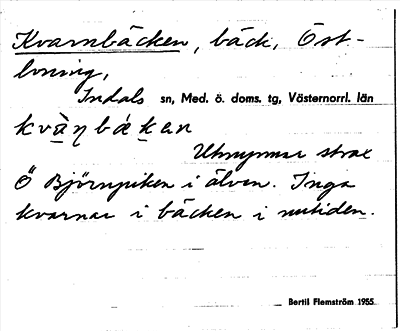 Kvarnbäcken, bäck, Öst-
loning,
Indals sn, Med. ö. doms. tg, Västernorrl. län
kvàηbákan
Utmynnar strax
Ö Björnpiken i älven. Inga
kvarnar i bäcken i nutiden.
Bertil Flemström 1955